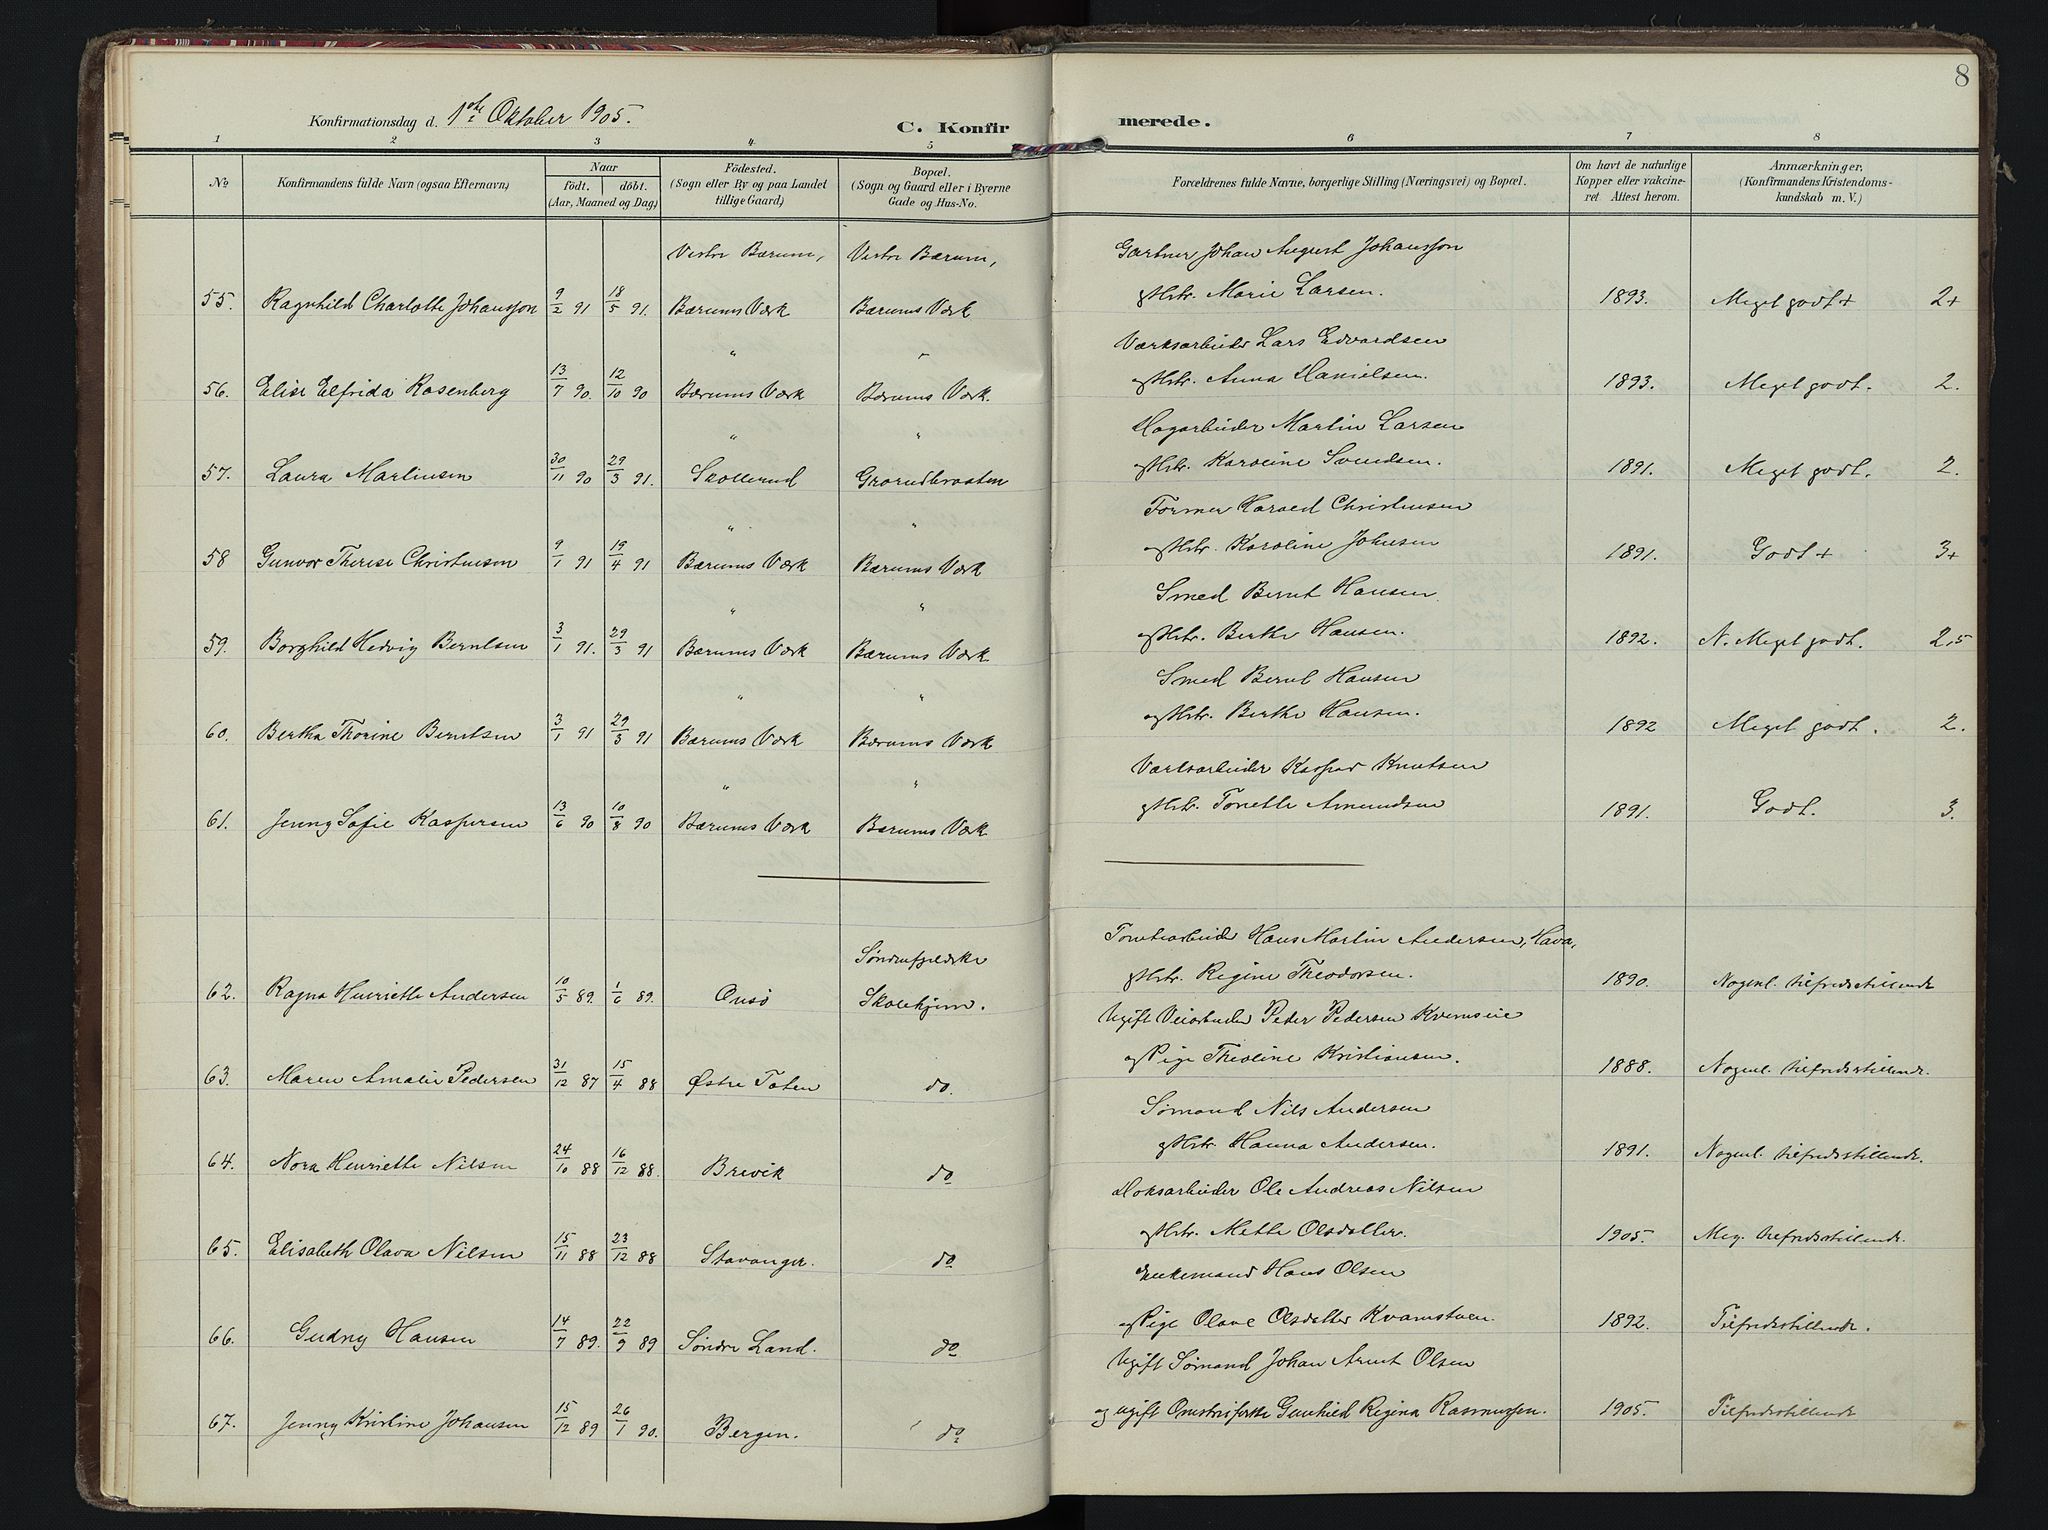 8
Konfirmationsdag d. 1ste Oktober 1905.
C. Konfirmerede.
1 2 3 4 5 6 7 8
No
Konfirmandens fulde Navn (ogsaa Efternavn)
Naar
födt. döbt.
(Aar, Maaned og Dag)
Födested.
(Sogn eller By og paa Landet
tillige Gaard)
Bopæl.
(Sogn og Gaard eller i Byerne
Gade og Hus-No.
Forældrenes fulde Navne, borgerlige Stilling (Næringsvei) og Bopæl.
Om havt de naturlige
Kopper eller vakcine-
ret Attest herom.
Anmærkninger,
(Konfirmandens Kristendoms-
kundskab m. V.)
Vestre Bærum, Vestre Bærum, Gartner Johan August Johansson
55. Ragnhild Charlotte Johansson 9/2 91 18/5 91. Bærums Værk Bærums Værk og Hstr. Marie Larsen. 1893. Meget godt + 2+
" " Værksarbeider Lars Edvardsen
56. Elise Elfrida Rosenberg 13/7 90. 12/10 90 Bærums Værk Bærums Værk. og Hstr. Anna Danielsen. 1893. Meget godt. 2.
" " Dagarbeider Martin Larsen
57. Laura Martinsen 30/11 90 29/3 91. Skollerud Grorudbraaten og Hstr. Karoline Svendsen. 1891. Meget godt. 2.
" " Former Harald Christensen
58 Gunvor Therese Christensen 9/1 91 19/4 91 Bærums Værk Bærums Værk og Hstr. Karoline Johnsen 1891. Godt + 3+
" " Smed Bernt Hansen
59. Borghild Hedvig Berntsen 3/1 91. 29/3 91 Bærums Værk Bærums Værk og Hstr. Berthe Hansen. 1892. N. Meget godt. 2,5
" " Smed Bernt Hansen
60. Bertha Thorine Berntsen 3/1 91 29/3 91 Bærums Værk Bærums Værk og Hstr. Berthe Hansen. 1892 Meget godt. 2.
" " Værksarbeider Kaspar Knutsen
61. Jenny Sofie Kaspersen 13/6 90 10/8 90 Bærums Værk Bærums Værk og Hstr. Tonette Amundsen 1891. Godt. 3.
Søndenfjeldske Tomtearbeider Hans Martin Andersen,
62. Ragna Henriette Andersen 10/5 89. 1/6 89. Onsö Skolehjem. og Hstr. Regine Theodorsen. 1890. Nogenl. tilfredsstillende
Ugift Veiarbeider Peder Pedersen
63. Maren Amalie Pedersen 31/12 87 15/4 88 Østre Toten do. og Pige Theoline Kristiansen. 1888. Nogenl. tilfredsstillende.
Sømand Nils Andersen
64. Nora Henriette Nilsen 24/10 88 16/12 88. Brevik do og Hstr. Hanna Andersen. 1891. Nogenl. tilfredsstillende.
Doksarbeider Ole Andreas Nilsen
65. Elisabeth Olava Nilsen 15/11 88 23/12 88 Stavanger. do og Hstr. Mette Olsdatter. 1905. Meg. tilfredsstillende.
Enkemand Hans Olsen
66. Gudny Hansen 14/7 89. 22/9 89 Søndre Land. do og Pige Olave Olsdatter Kvamstuen. 1892. Tilfredsstillende.
Ugift Sømand Johan Arnt Olsen
67. Jenny Kristine Johansen 15/12 89 26/1 90. Bergen. do og ugift Gunhild Regina Rasmussen. 1905. Tilfredsstillende